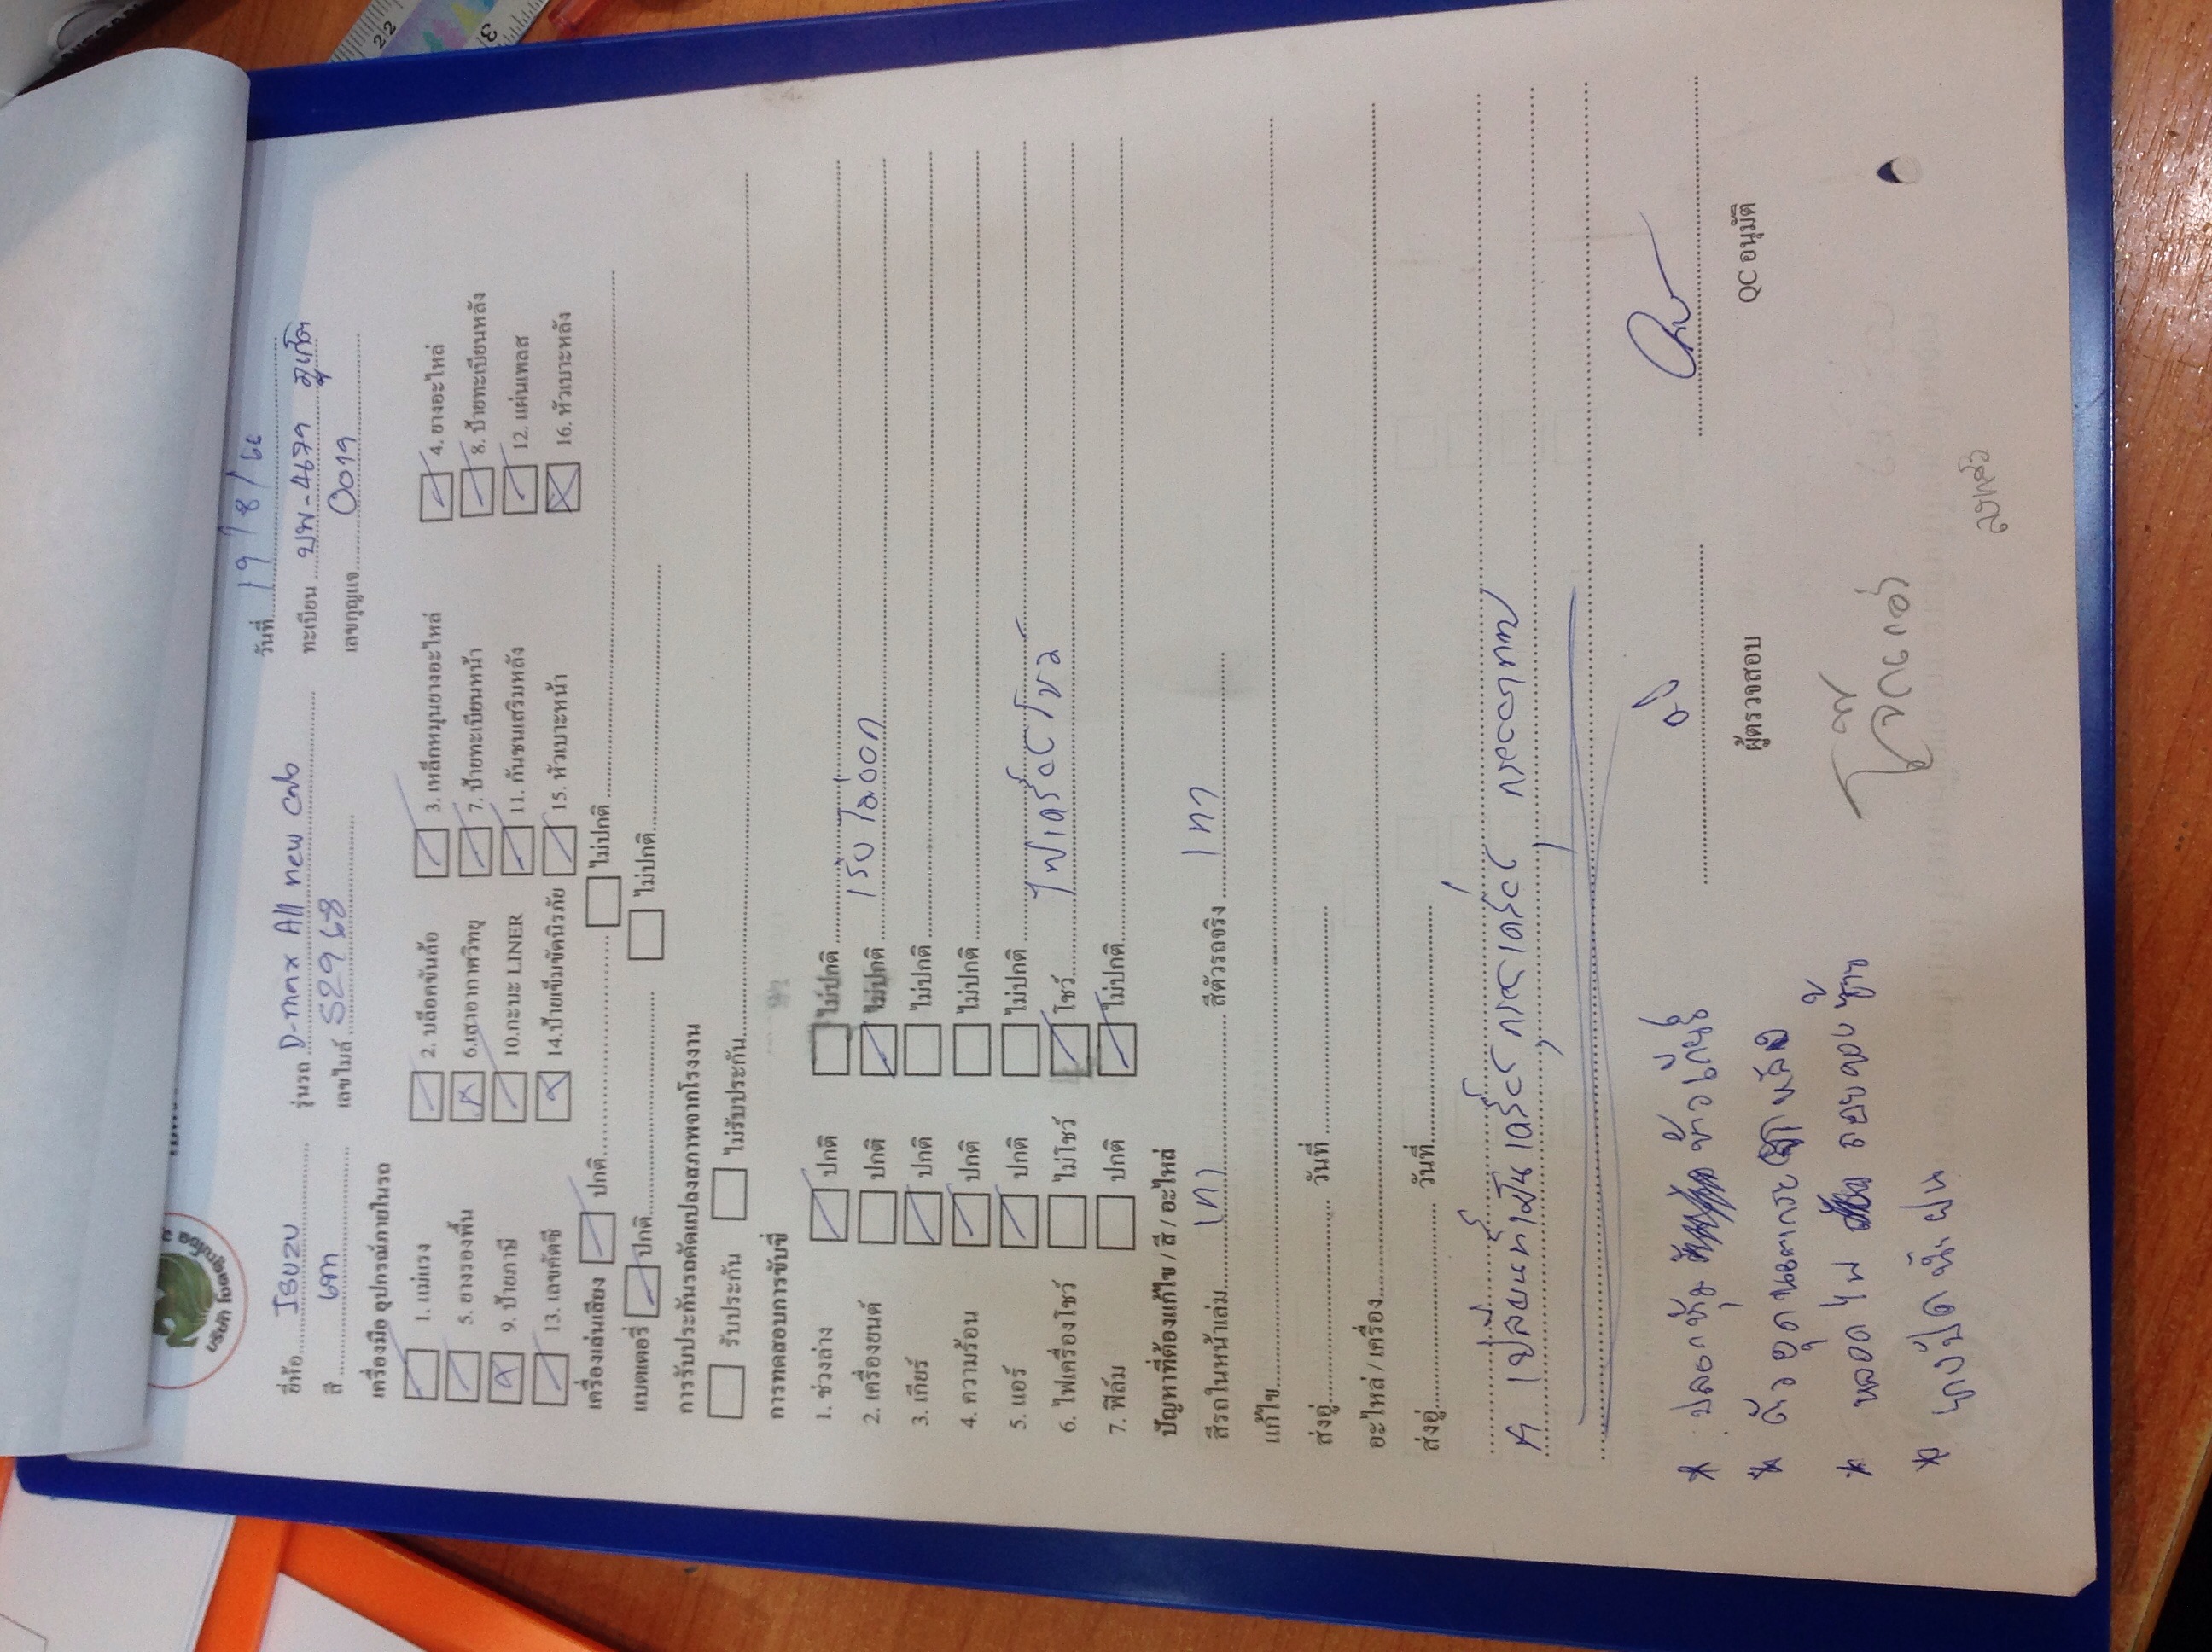 วันที่ 19/8/66
ยี่ห้อ ISUZU รุ่นรถ D-max All new cab ทะเบียน บพ-4679 ภูเก็ต
สี เทา เลขไมล์ 52968 เลขกุญแจ 0019
เครื่องมือ อุปกรณ์ภายในรถ
1. แม่แรง 2. บล็อกขันล้อ 3. เหล็กหมุนยางอะไหล่ 4. ยางอะไหล่
5. ยางรองพื้น 6.เสาอากาศวิทยุ 7. ป้ายทะเบียนหน้า 8. ป้ายทะเบียนหลัง
9. ป้ายภาษี 10.กะบะ LINER 11. กันชนเสริมหลัง 12. แผ่นเพลส
13. เลขคัตซี 14.ป้ายเข็มขัดนิรภัย 15. หัวเบาะหน้า 16. หัวเบาะหลัง
เครื่องเล่นเสียง ปกติ ไม่ปกติ
แบตเตอรี่ ปกติ ไม่ปกติ
การรับประกันรถดัดแปลงสภาพจากโรงงาน
รับประกัน ไม่รับประกัน
การทดสอบการขับขี่
1. ช่วงล่าง ปกติ ไม่ปกติ
2. เครื่องยนต์ ปกติ ไม่ปกติ เร่งไม่ออก
3. เกียร์ ปกติ ไม่ปกติ
4. ความร้อน ปกติ ไม่ปกติ
5. แอร์ ปกติ ไม่ปกติ
6. ไฟเครื่องโชว์ ไม่โชว์ โชว์ ไฟเครื่องโชว์
7. ฟิล์ม ปกติ ไม่ปกติ
ปัญหาที่ต้องแก้ไข / สี / อะไหล่
สีรถในหน้าเล่ม เทา สีตัวรถจริง เทา
แก้ไข
ส่งอู่ วันที่
อะไหล่ / เครื่อง
ส่งอู่ วันที่
ผู้ตรวจสอบ QC อนุมัติ
* ปลอกหุ้ม หัวเกียร์
* ตัวอุด
* หลอดไฟ ซ้าย
* ปิด